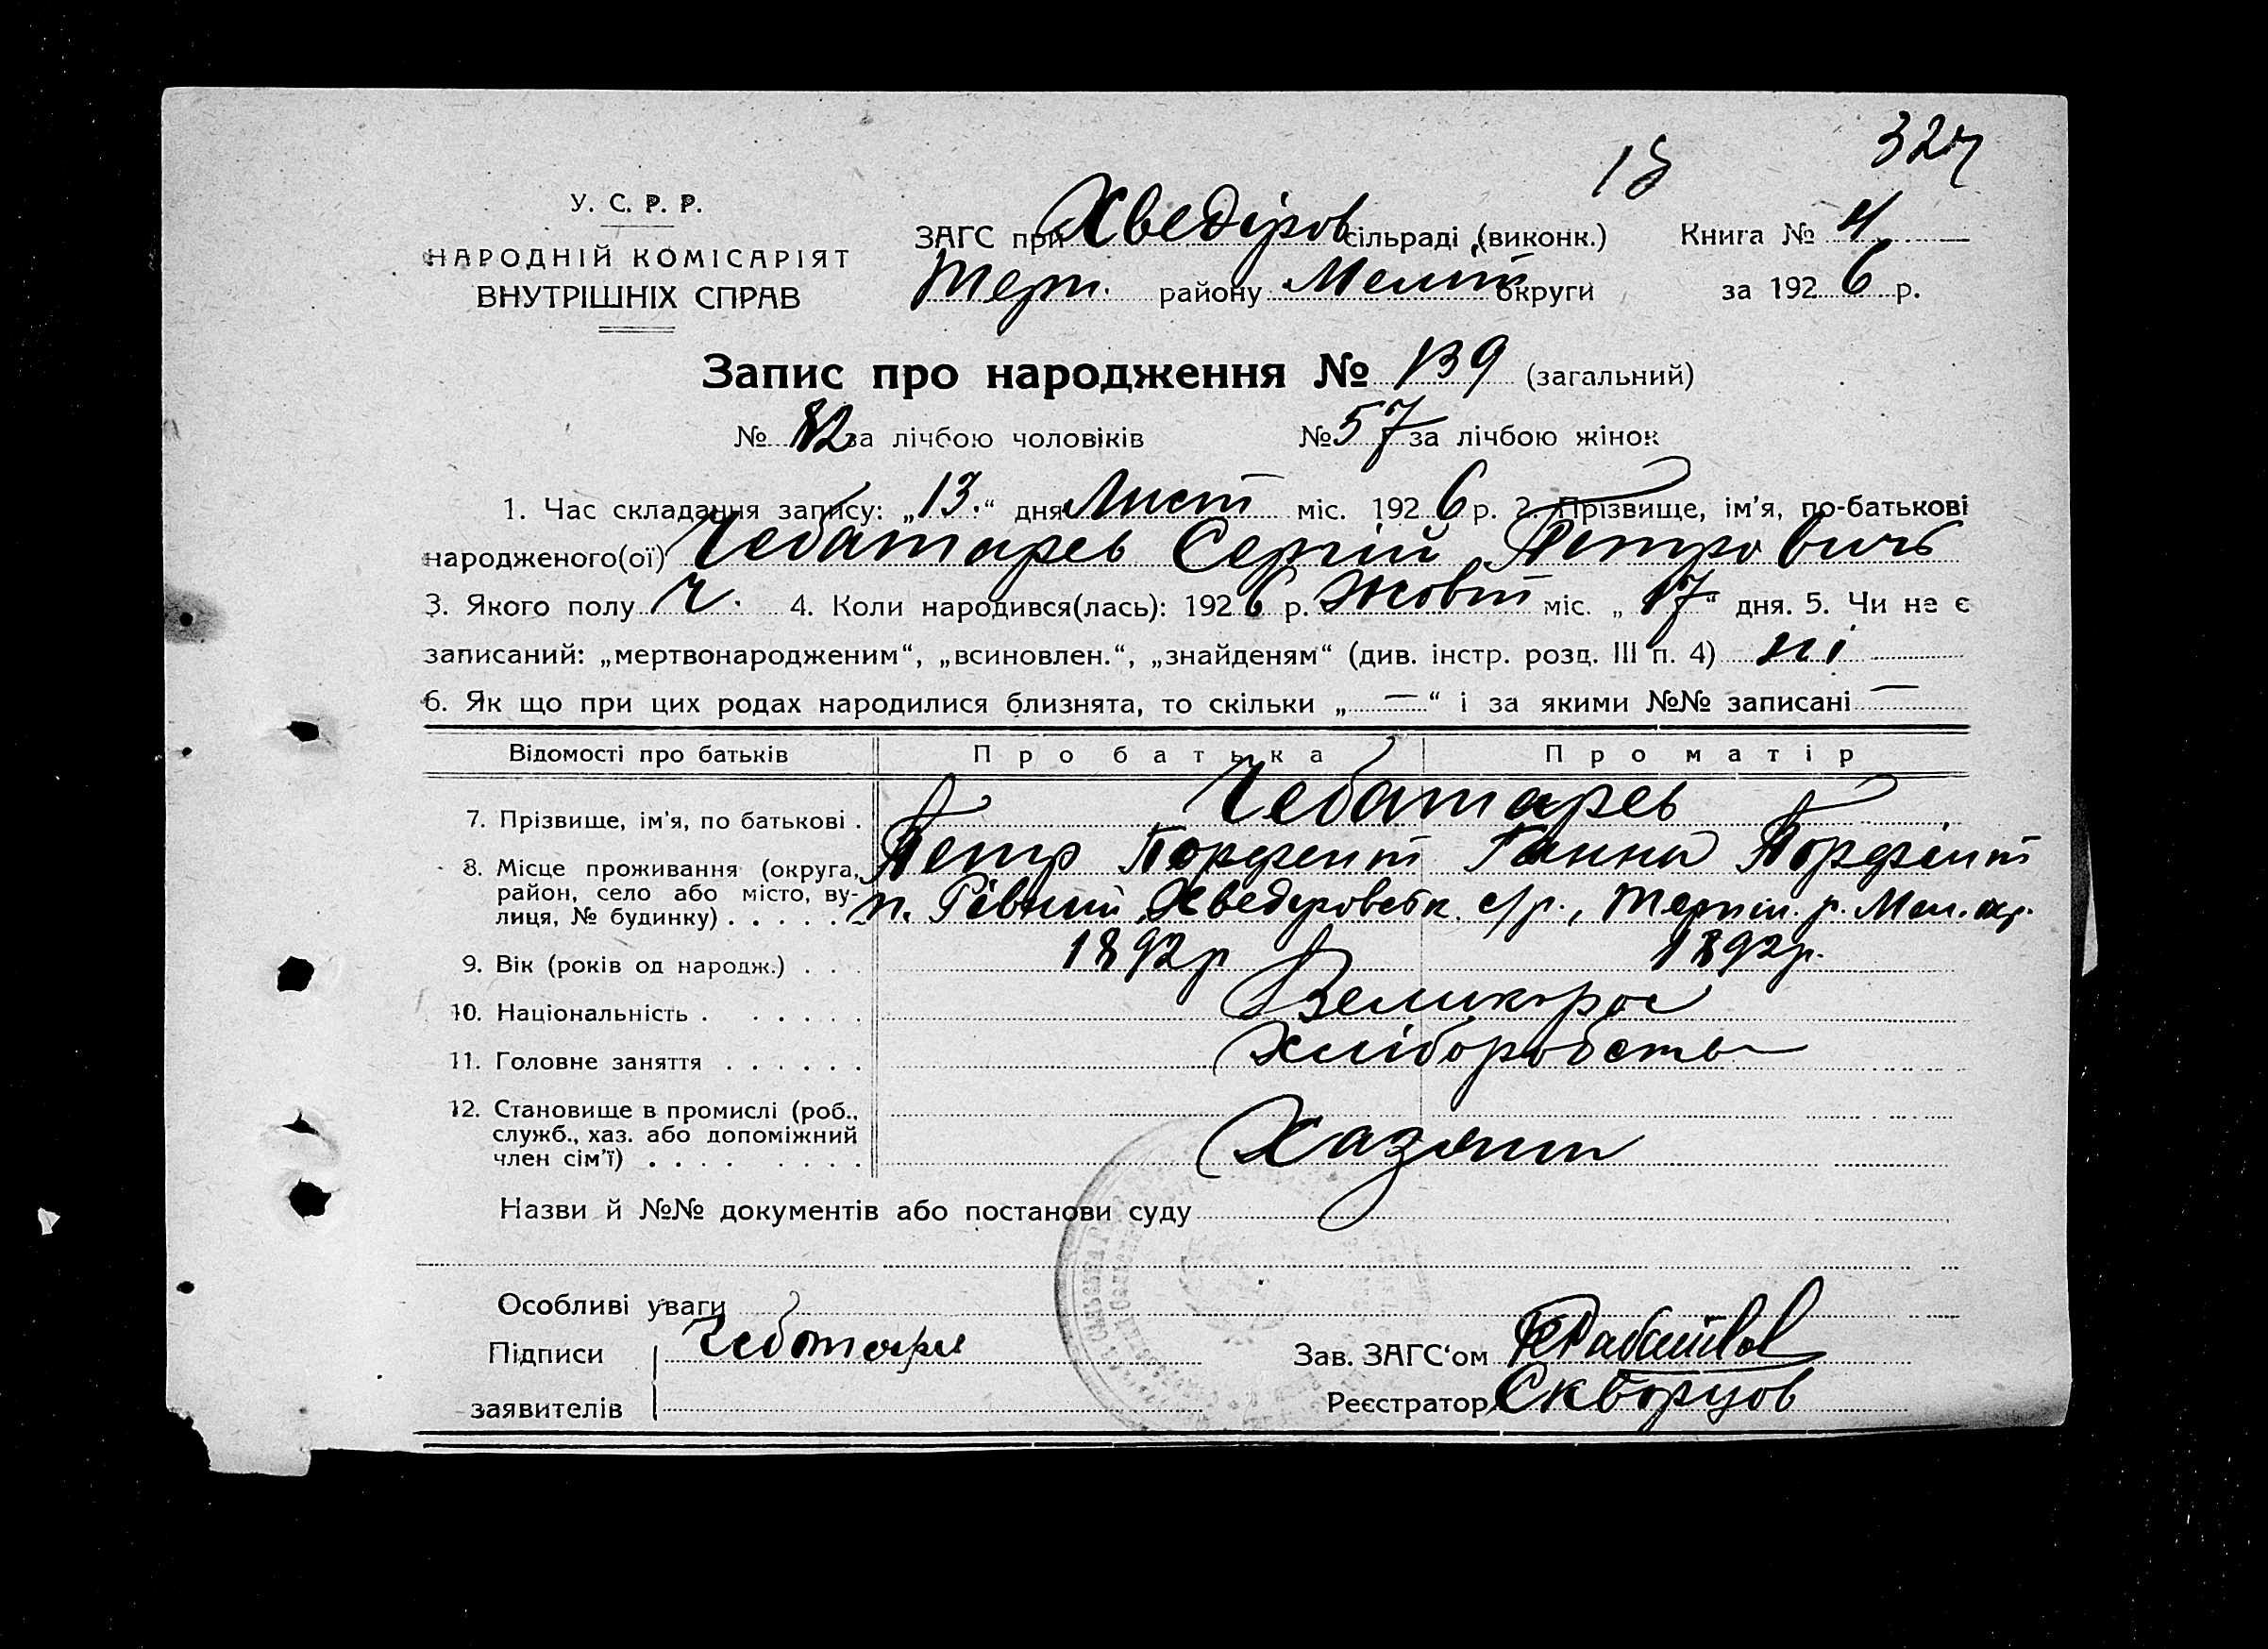 327
15
У. С. Р. Р.
НАРОДНІЙ КОМІСАРІЯТ
ВНУТРІШНІХ СПРАВ
ЗАГС при Хведіров сільраді (виконк.)
Терп. району Меліт округи
Книга № 4
за 1926 р.
Запис про народження № 139 (загальний)
№ 82 за лічбою чоловіків № 57 за лічбою жінок
1. Час складання запису: „13.“ дня Лист міс. 1926 р. 2. Прізвище, ім'я, по-батькові
народженого(ої) Чебатарев Сергій Петрович
3. Якого полу ч. 4. Коли народився(лась): 1926 р. Жовт міс. „17“ дня. 5. Чи не є
записаний: „мертвонародженим“, „всиновлен.“, „знайденям“ (див. інстр. розд. III п. 4) ні
6. Як що при цих родах народилися близнята, то скільки „—“ і за якими №№ записані —
Відомості про батьків Про батька Про матір
7. Прізвище, ім'я, по батькові . Чебатарев
Петр Порфент Ганна Порфент
8. Місце проживання (округа, район, село або місто, вулиця, № будинку) . . . . .
п. Рівний Хведоровськ. с/р., Терпін. р. Мел. окр.
9. Вік (років од народж.) . . . 1892р 1892р.
10. Національність . . . . . . Великорос
11. Головне заняття . . . . . . Хліборобство
12. Становище в промислі (роб., служб., хаз. або допоміжний член сім'ї) . . . .
Хазяїн
Назви й №№ документів або постанови суду
Особливі уваги
Підписи Чеботарев
заявителів
Зав. ЗАГС'ом
Реєстратор Скворцов